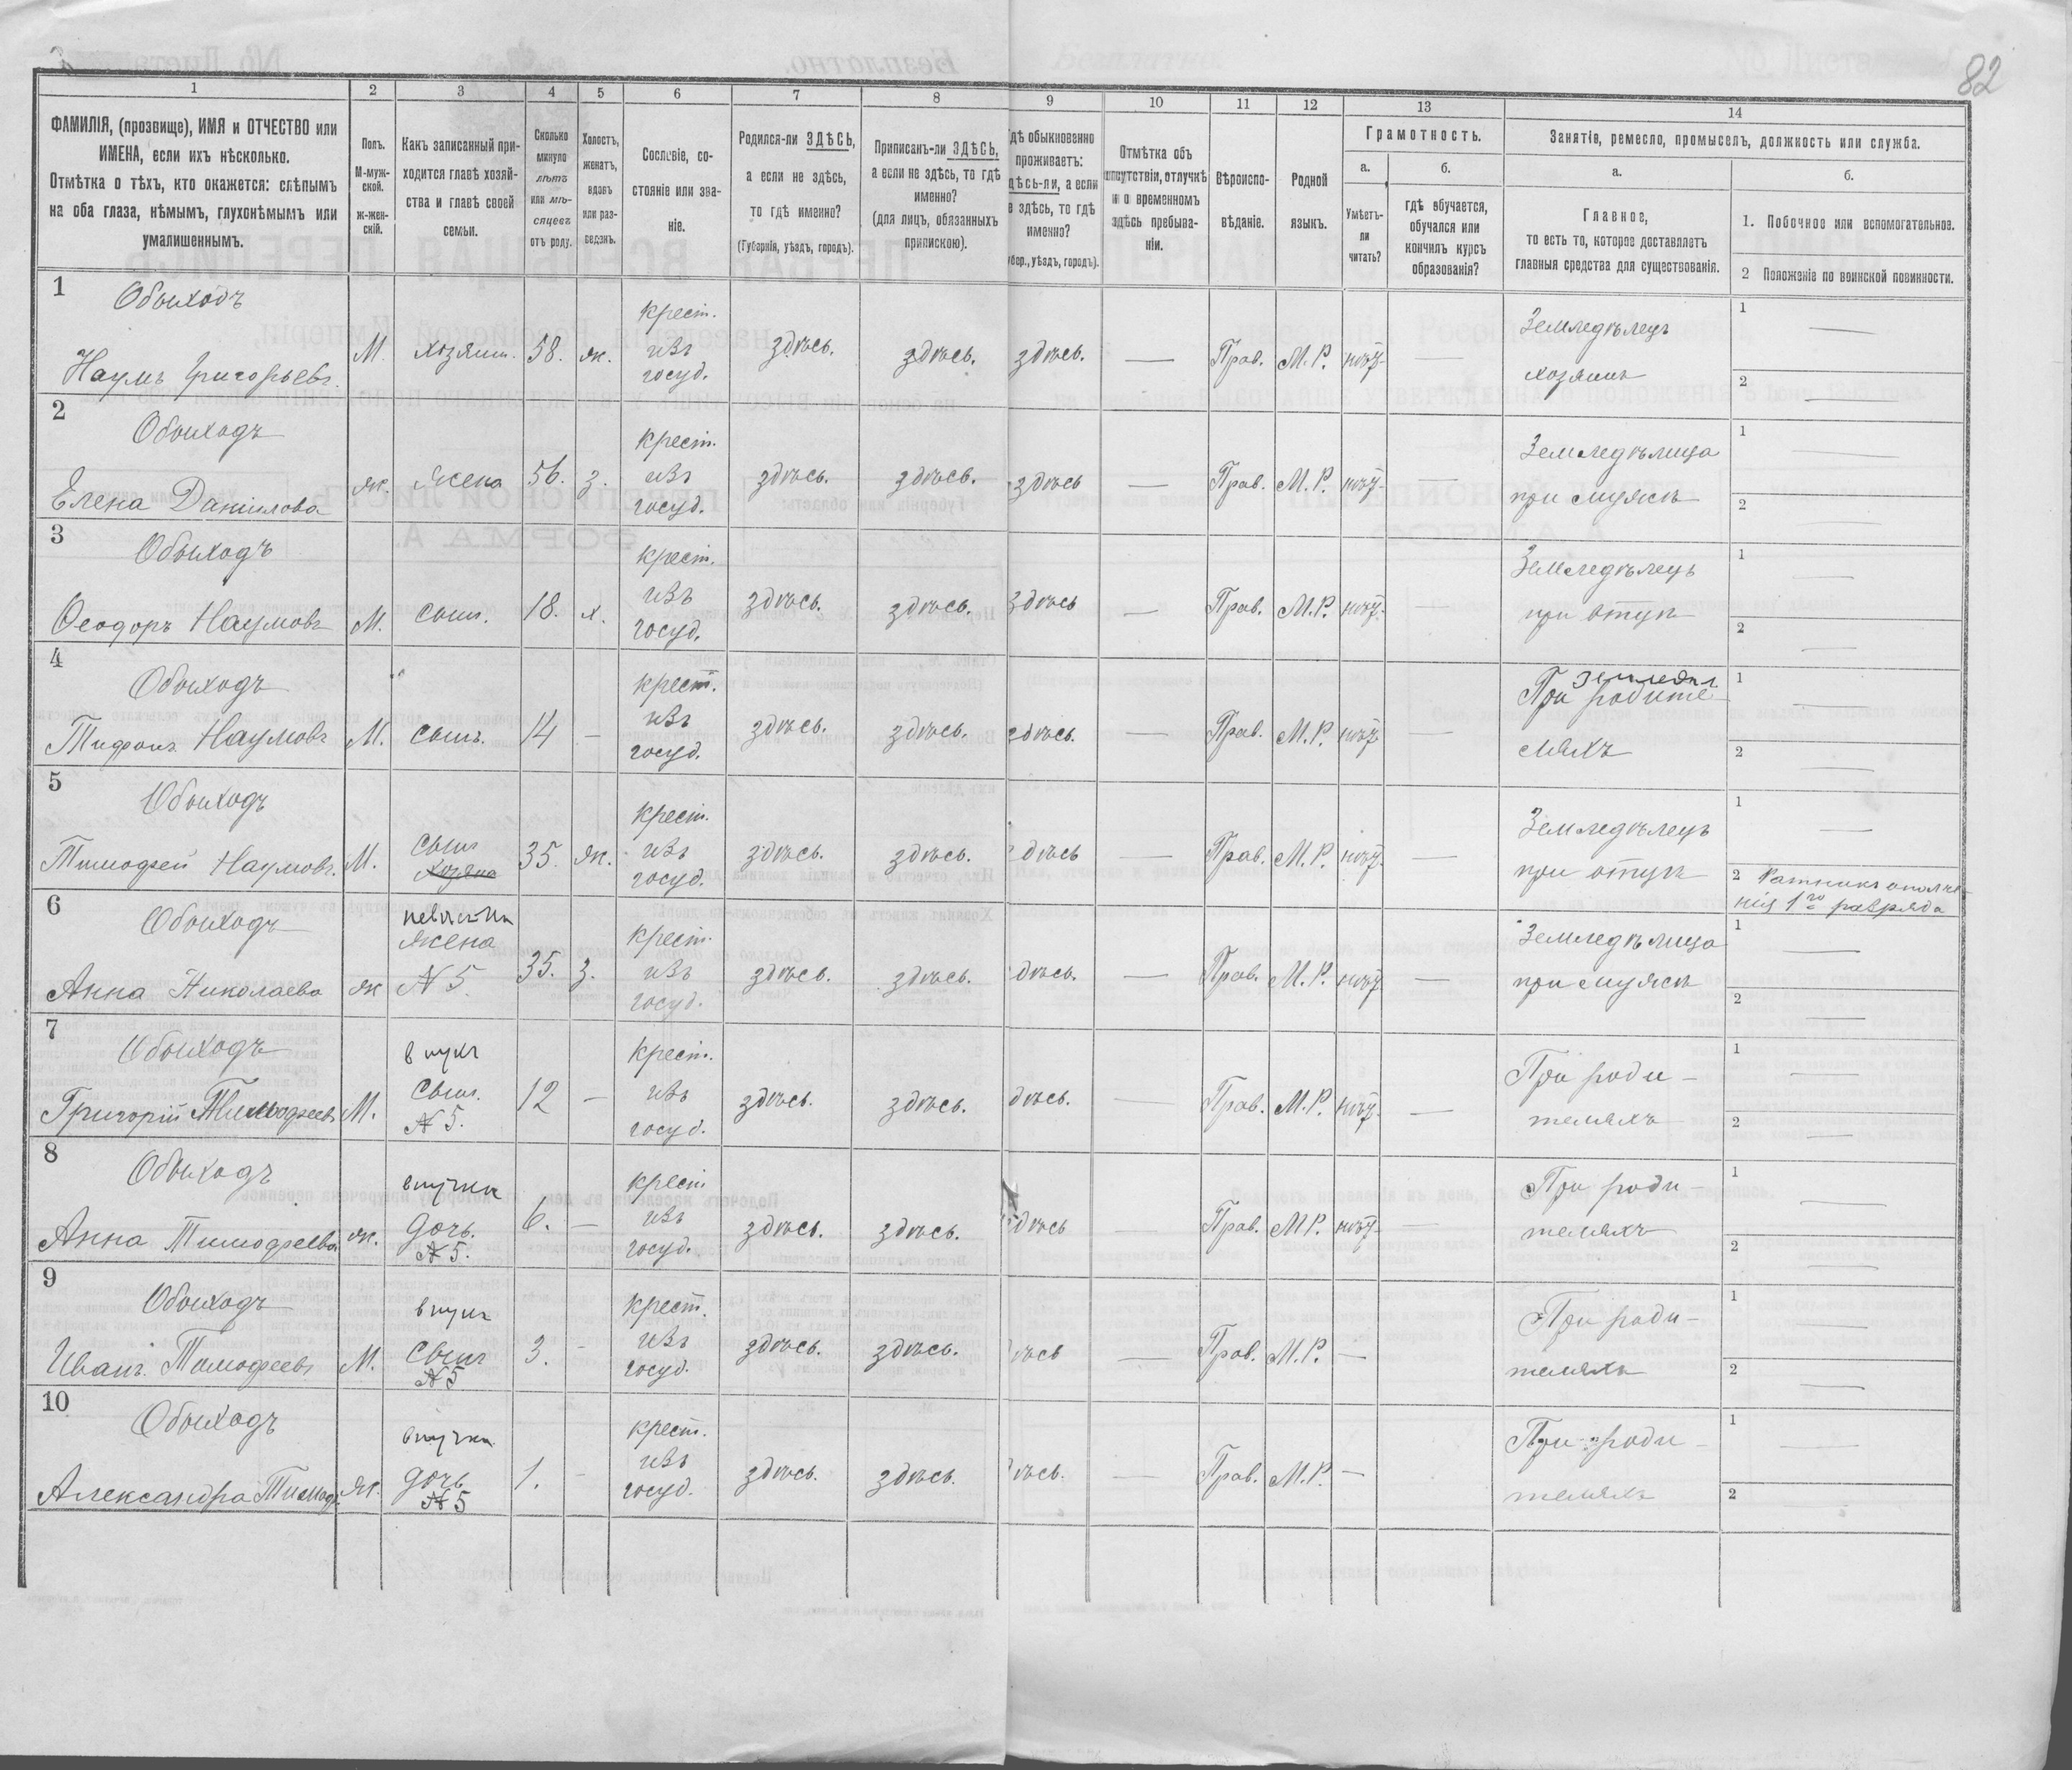 82
1 2 3 4 5 6 7 8 9 10 11 12 13 14
ФАМИЛІЯ, (прозвище), ИМЯ и ОТЧЕСТВО или
ИМЕНА, если ихъ нѣсколько.
Отмѣтка о тѣхъ, кто окажется: слѣпымъ
на оба глаза, нѣмымъ, глухонѣмымъ или
умалишеннымъ.
Полъ.
М-муж-
ской.
ж-жен-
скій.
Какъ записанный при-
ходится главѣ хозяй-
ства и главѣ своей
семьи.
Сколько
минуло
лѣтъ
или мѣ-
сяцевъ
отъ роду.
Холостъ,
женатъ,
вдовъ
или раз-
веденъ.
Сословіе, со-
стояніе или зва-
ніе.
Родился-ли ЗДѢСЬ,
а если не здѣсь,
то гдѣ именно?
(Губернія, уѣздъ, городъ).
Приписанъ-ли ЗДѢСЬ,
а если не здѣсь, то гдѣ
именно?
(для лицъ, обязанныхъ
припискою).
дѣ обыкновенно
проживаетъ:
дѣсь-ли, а если
е здѣсь, то гдѣ
именно?
убер., уѣздъ, городъ).
Отмѣтка объ
отсутствіи, отлучкѣ
и о временномъ
здѣсь пребыва-
ніи.
Вѣроиспо-
вѣданіе.
Родной
языкъ.
Грамотность.
а.
Умѣетъ-
ли
читать?
б.
гдѣ обучается,
обучался или
кончилъ курсъ
образованія?
Занятія, ремесло, промыселъ, должность или служба.
а.
Главное,
то есть то, которое доставляетъ
главныя средства для существованія.
б.
1. Побочное или вспомогательное.
2 Положеніе по воинской повинности.
1
Обыходъ
Наумъ Григорьевъ.
М. хозяинъ. 58. ж.
крест.
изъ
госуд.
здѣсь. здѣсь. здѣсь. — Прав. М. Р. нѣтъ —
Земледѣлецъ
хозяинъ
1 —
2 —
2
Обыходъ
Елена Данилова
ж. жена 56. з.
крест.
изъ
госуд.
здѣсь. здѣсь. здѣсь — Прав. М. Р. нѣтъ —
Земледѣлица
при мужѣ
1 —
2 —
3
Обыходъ
Ѳеодоръ Наумовъ
М. сынъ. 18. х.
крест.
изъ
госуд.
здѣсь. здѣсь. здѣсь — Прав. М. Р. нѣтъ —
Земледѣлецъ
при отцѣ
1 —
2 —
4
Обыходъ
Тифонъ Наумовъ
М. сынъ. 14 —
крест.
изъ
госуд.
здѣсь. здѣсь. здѣсь. — Прав. М. Р. нѣтъ —
Земледѣл
При родите-
ляхъ
1 —
2 —
5
Обыходъ
Тимофей Наумовъ.
М. сынъ
хозяина
35. ж.
крест.
изъ
госуд.
здѣсь. здѣсь. дѣсь — Прав. М. Р. нѣтъ —
Земледѣлецъ
при отцѣ
1 —
2 Ратникъ ополче-
нія 1го разряда
6
Обыходъ
Анна Николаева
ж
невѣстка
жена
N 5.
35. з.
крест.
изъ
госуд.
здѣсь. здѣсь. дѣсь. — Прав. М. Р. нѣтъ —
Земледѣлица
при мужѣ
1 —
2 —
7
Обыходъ
Григорій Тимофеевъ
М.
внукъ
сынъ.
N 5.
12 —
крест.
изъ
госуд.
здѣсь. здѣсь. дѣсь. — Прав. М. Р. нѣтъ —
При роди-
теляхъ
1 —
2 —
8
Обыходъ
Анна Тимофеева
ж.
внучка
дочь.
N 5.
6. —
крест
изъ
госуд.
здѣсь. здѣсь. здѣсь — Прав. М Р. нѣтъ —
При роди-
теляхъ
1 —
2 —
9
Обыходъ
Иванъ. Тимофеевъ
М.
внукъ
сынъ
N 5
3. -
крест.
изъ
госуд.
здѣсь. здѣсь. ѣсь — Прав. М. Р. —
При роди-
теляхъ
1 —
2 —
10
Обыходъ
Александра Тимоф.
ж.
внучка
дочь
N 5
1. -
крест.
изъ
госуд.
здѣсь. здѣсь. ѣсь. — Прав. М. Р. —
При роди-
теляхъ
1 —
2 —